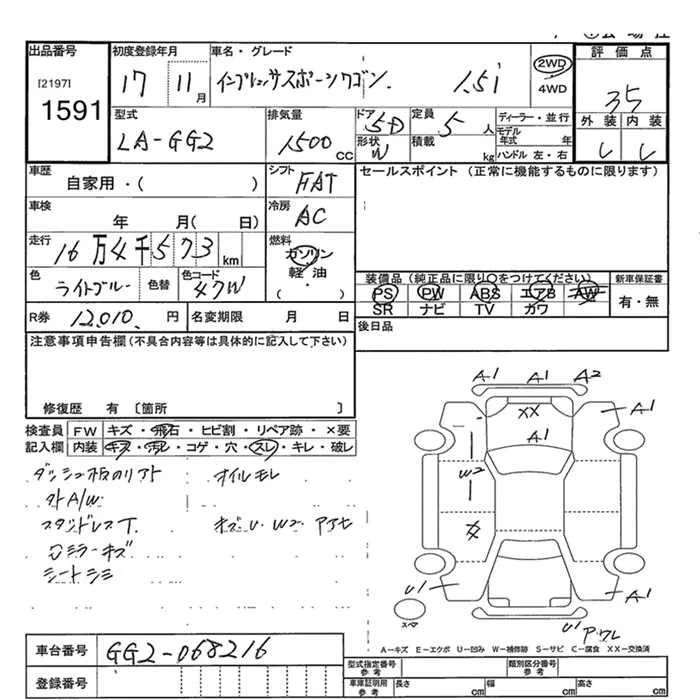 出品番号
[2197]
1591
初度登録年月
17 11月
車名・グレード
インプレッサスポーツワゴン 1.5i
2WD
4WD
評価点
3.5
外装 内装
型式
LA-GG2
排気量
1500cc
ドア
5D
形状
W
定員
5人
積載
kg
ディーラー・並行
モデル年式 年
ハンドル 左・右
車歴
自家用・( )
シフト
FAT
セールスポイント(正常に機能するものに限ります)
車検
年 月( 日)
冷房
AC
走行
16万4千573km
燃料
ガソリン
軽油
( )
色
ライトブルー
色替
色コード
47W
装備品(純正品に限り○をつけてください)
PS PW ABS エアB AW
SR ナビ TV カワ
新車保証書
有・無
R券
12,010 円
名変期限 月 日
後日品
注意事項申告欄(不具合内容等は具体的に記入して下さい)
修復歴 有 〔箇所 〕
検査員記入欄
FW キズ・飛石・ヒビ割・リペア跡・×要
内装 キズ・汚レ・コゲ・穴・スレ・キレ・破レ
オイルモレ
外A/W
スタッドレスT.
キズU W2 アセ
ロミラーキズ
シートシミ
A1 A1 A2
XX
A1
A1
W2
U1
A1
スペア
U1
A-キズ E-エクボ U-凹み W-補修跡 S-サビ C-腐食 XX-交換済
車台番号
GG2-068216
登録番号
型式指定番号参考
類別区分番号参考
車庫証明用参考
長さ cm 幅 cm 高さ cm